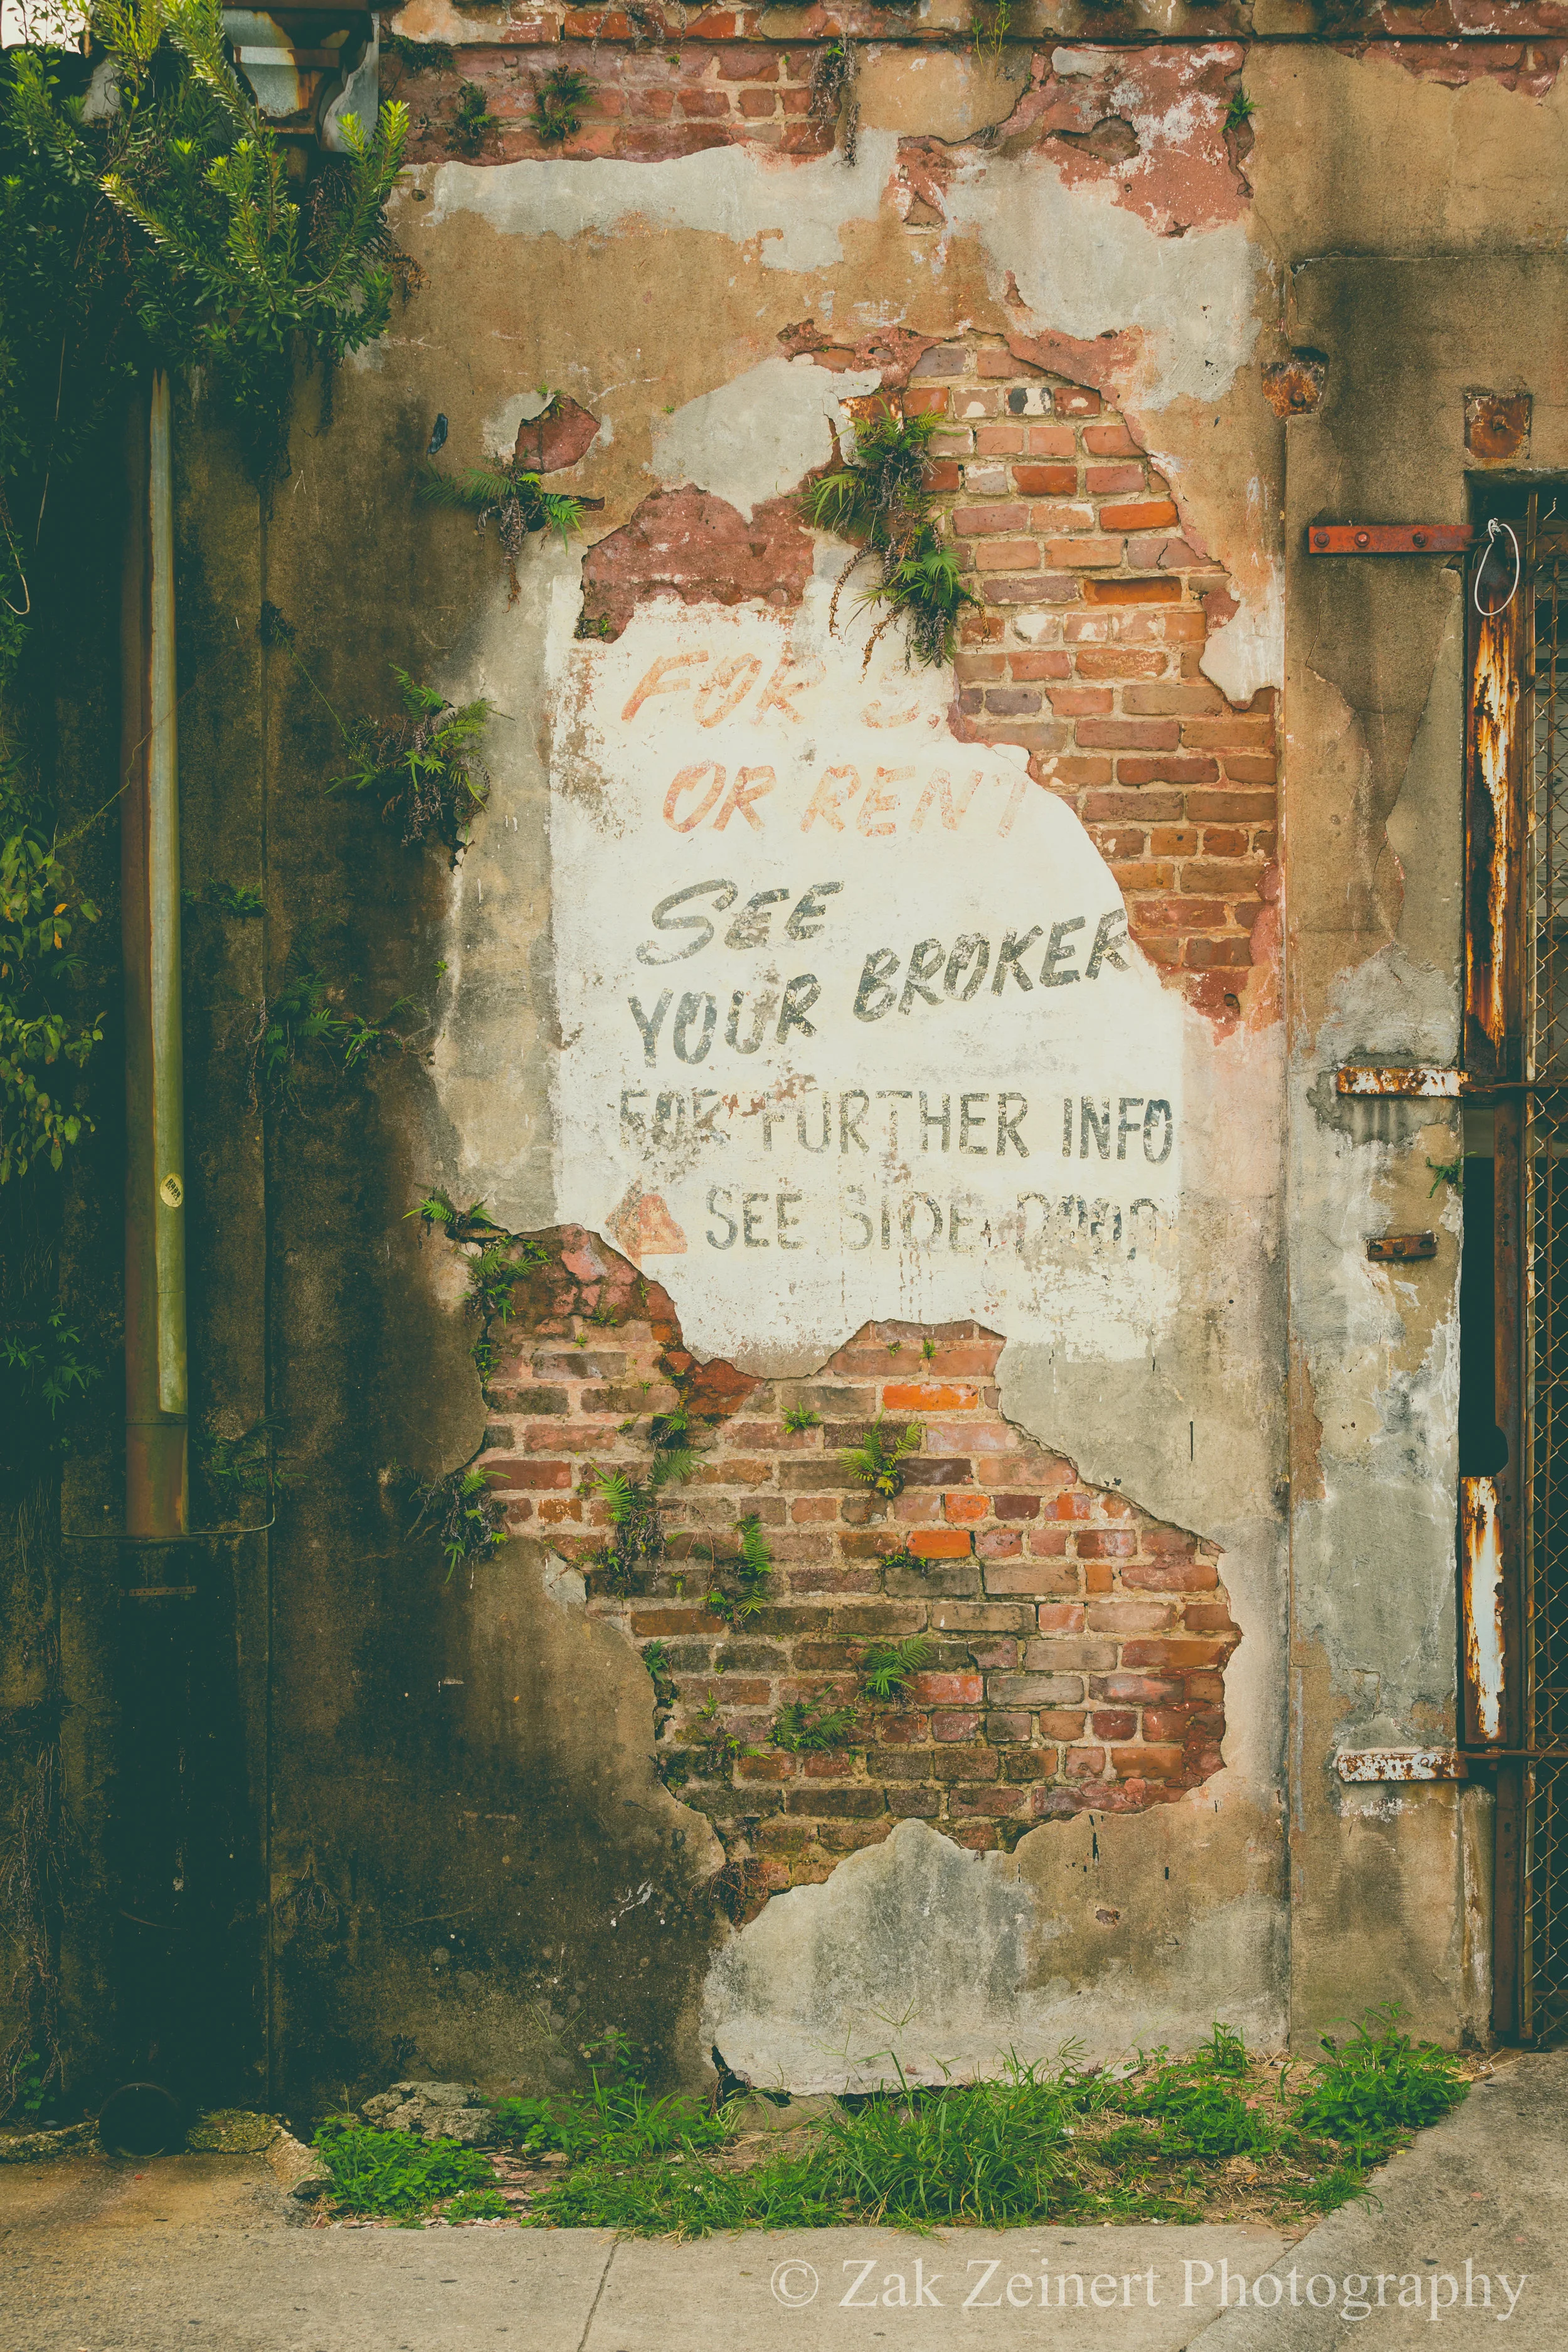 FOR S
OR RENT
SEE
YOUR BROKER
FOR FURTHER INFO
SEE SIDE DOOR
© Zak Zeinert Photography